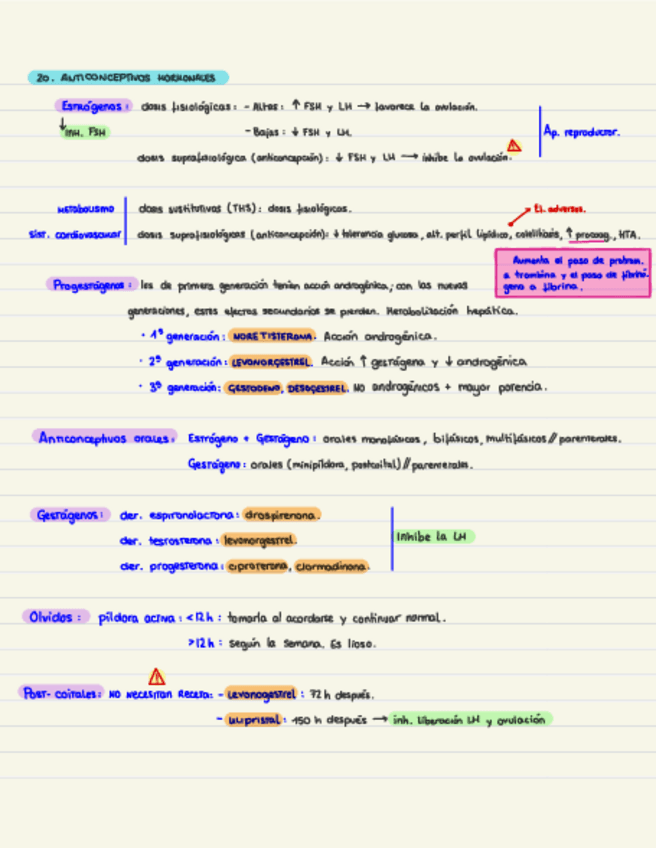 20. ANTICONCEPTIVOS HORMONALES
Estrógenos: dosis fisiológicas: - Altas: ↑ FSH y LH → favorece la ovulación.
↓ inh. FSH - Bajas: ↓ FSH y LH. Ap. reproductor.
dosis suprafisiológica (anticoncepción): ↓ FSH y LH → inhibe la ovulación.
METABOLISMO dosis sustitutivas (THS): dosis fisiológicas. Ef. adversos.
SIST. CARDIOVASCULAR dosis suprafisiológicas (anticoncepción): ↓ tolerancia glucosa, alt. perfil lipídico, colelitiasis, ↑ procoag., HTA.
Aumenta el paso de protrom.
a trombina y el paso de fibrinó-
geno a fibrina.
Progestágenos: los de primera generación tenían acción androgénica; con las nuevas
generaciones, estos efectos secundarios se pierden. Metabolización hepática.
· 1ª generación: NORETISTERONA. Acción androgénica.
· 2ª generación: LEVONORGESTREL. Acción ↑ gestágena y ↓ androgénica
· 3ª generación: GESTODENO, DESOGESTREL. NO androgénicos + mayor potencia.
Anticonceptivos orales: Estrógeno + Gestágeno: orales monofásicos, bifásicos, multifásicos // parenterales.
Gestágeno: orales (minipíldora, postcoital) // parenterales.
Gestágenos: der. espironolactona: drospirenona.
der. testosterona: levonorgestrel. Inhibe la LH
der. progesterona: ciproterona, clormadinona.
Olvidos: píldora activa: <12h: tomarla al acordarse y continuar normal.
>12h: según la semana. Es lioso.
Post-coitales: NO NECESITAN RECETA: - Levonogestrel: 72h después.
- Ulipristal: 150 h después → inh. liberación LH y ovulación